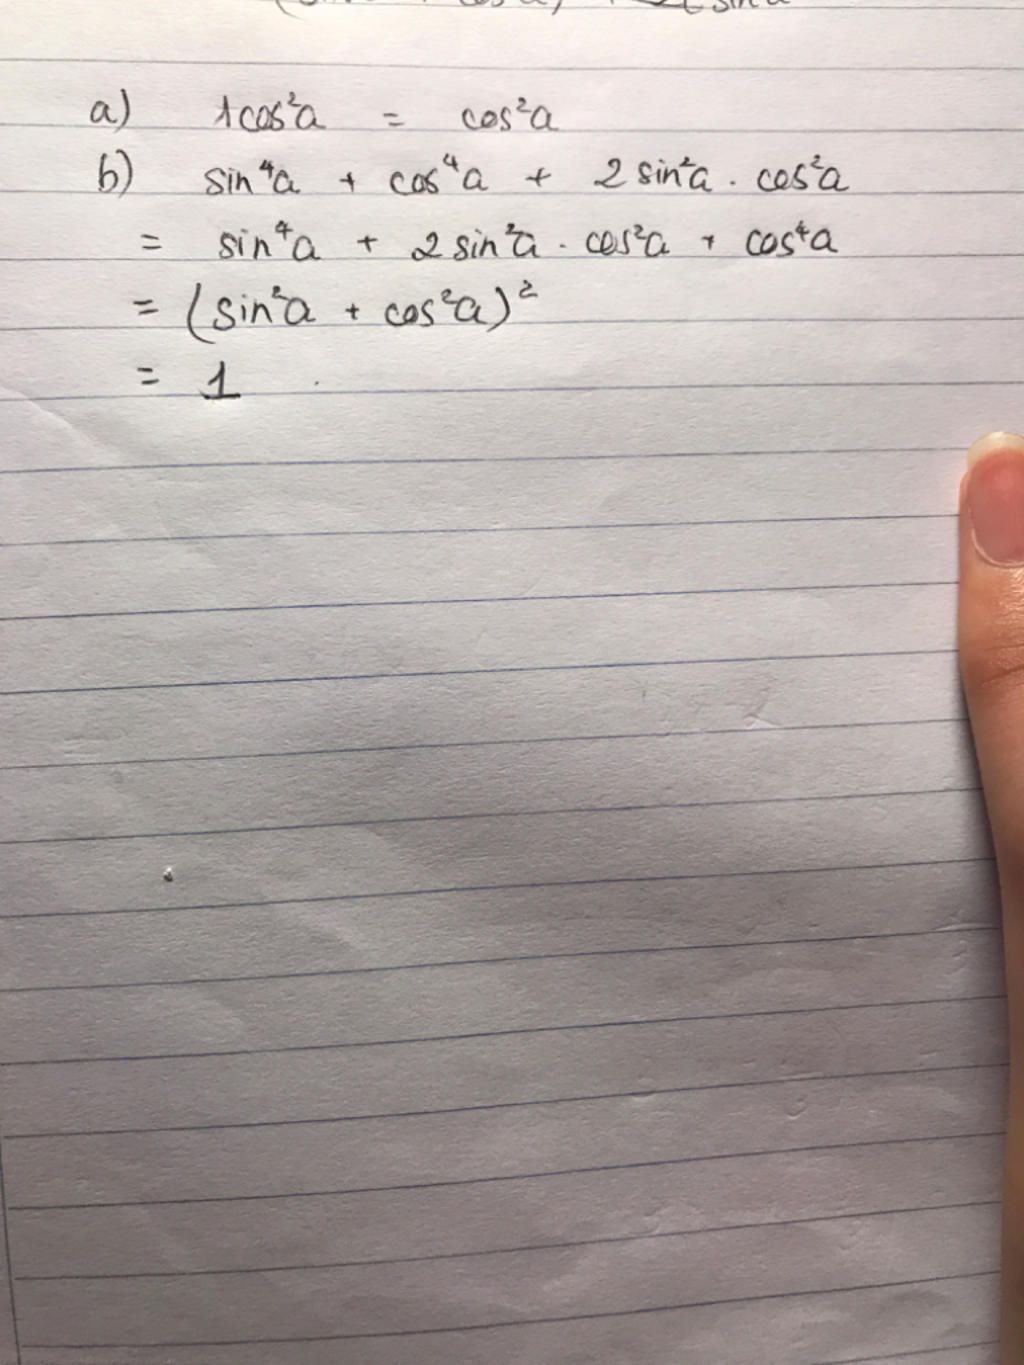 a) 1cos²a = cos²a
b) sin⁴a + cos⁴a + 2 sin²a . cos²a
= sin⁴a + 2 sin²a . cos²a + cos⁴a
= (sin²a + cos²a)²
= 1